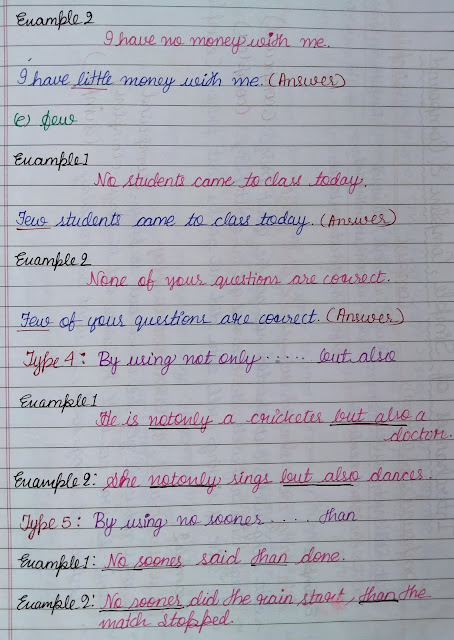 Example 2
I have no money with me.
I have little money with me. (Answer)
(e) few
Example 1
No students came to class today.
Few students came to class today. (Answer)
Example 2
None of your questions are correct.
Few of your questions are correct. (Answer)
Type 4: By using not only ..... but also
Example 1
He is notonly a cricketer but also a
doctor.
Example 2: She notonly sings but also dances.
Type 5: By using no sooner .... than
Example 1: No sooner said than done.
Example 2: No sooner did the rain start, than the
match stopped.